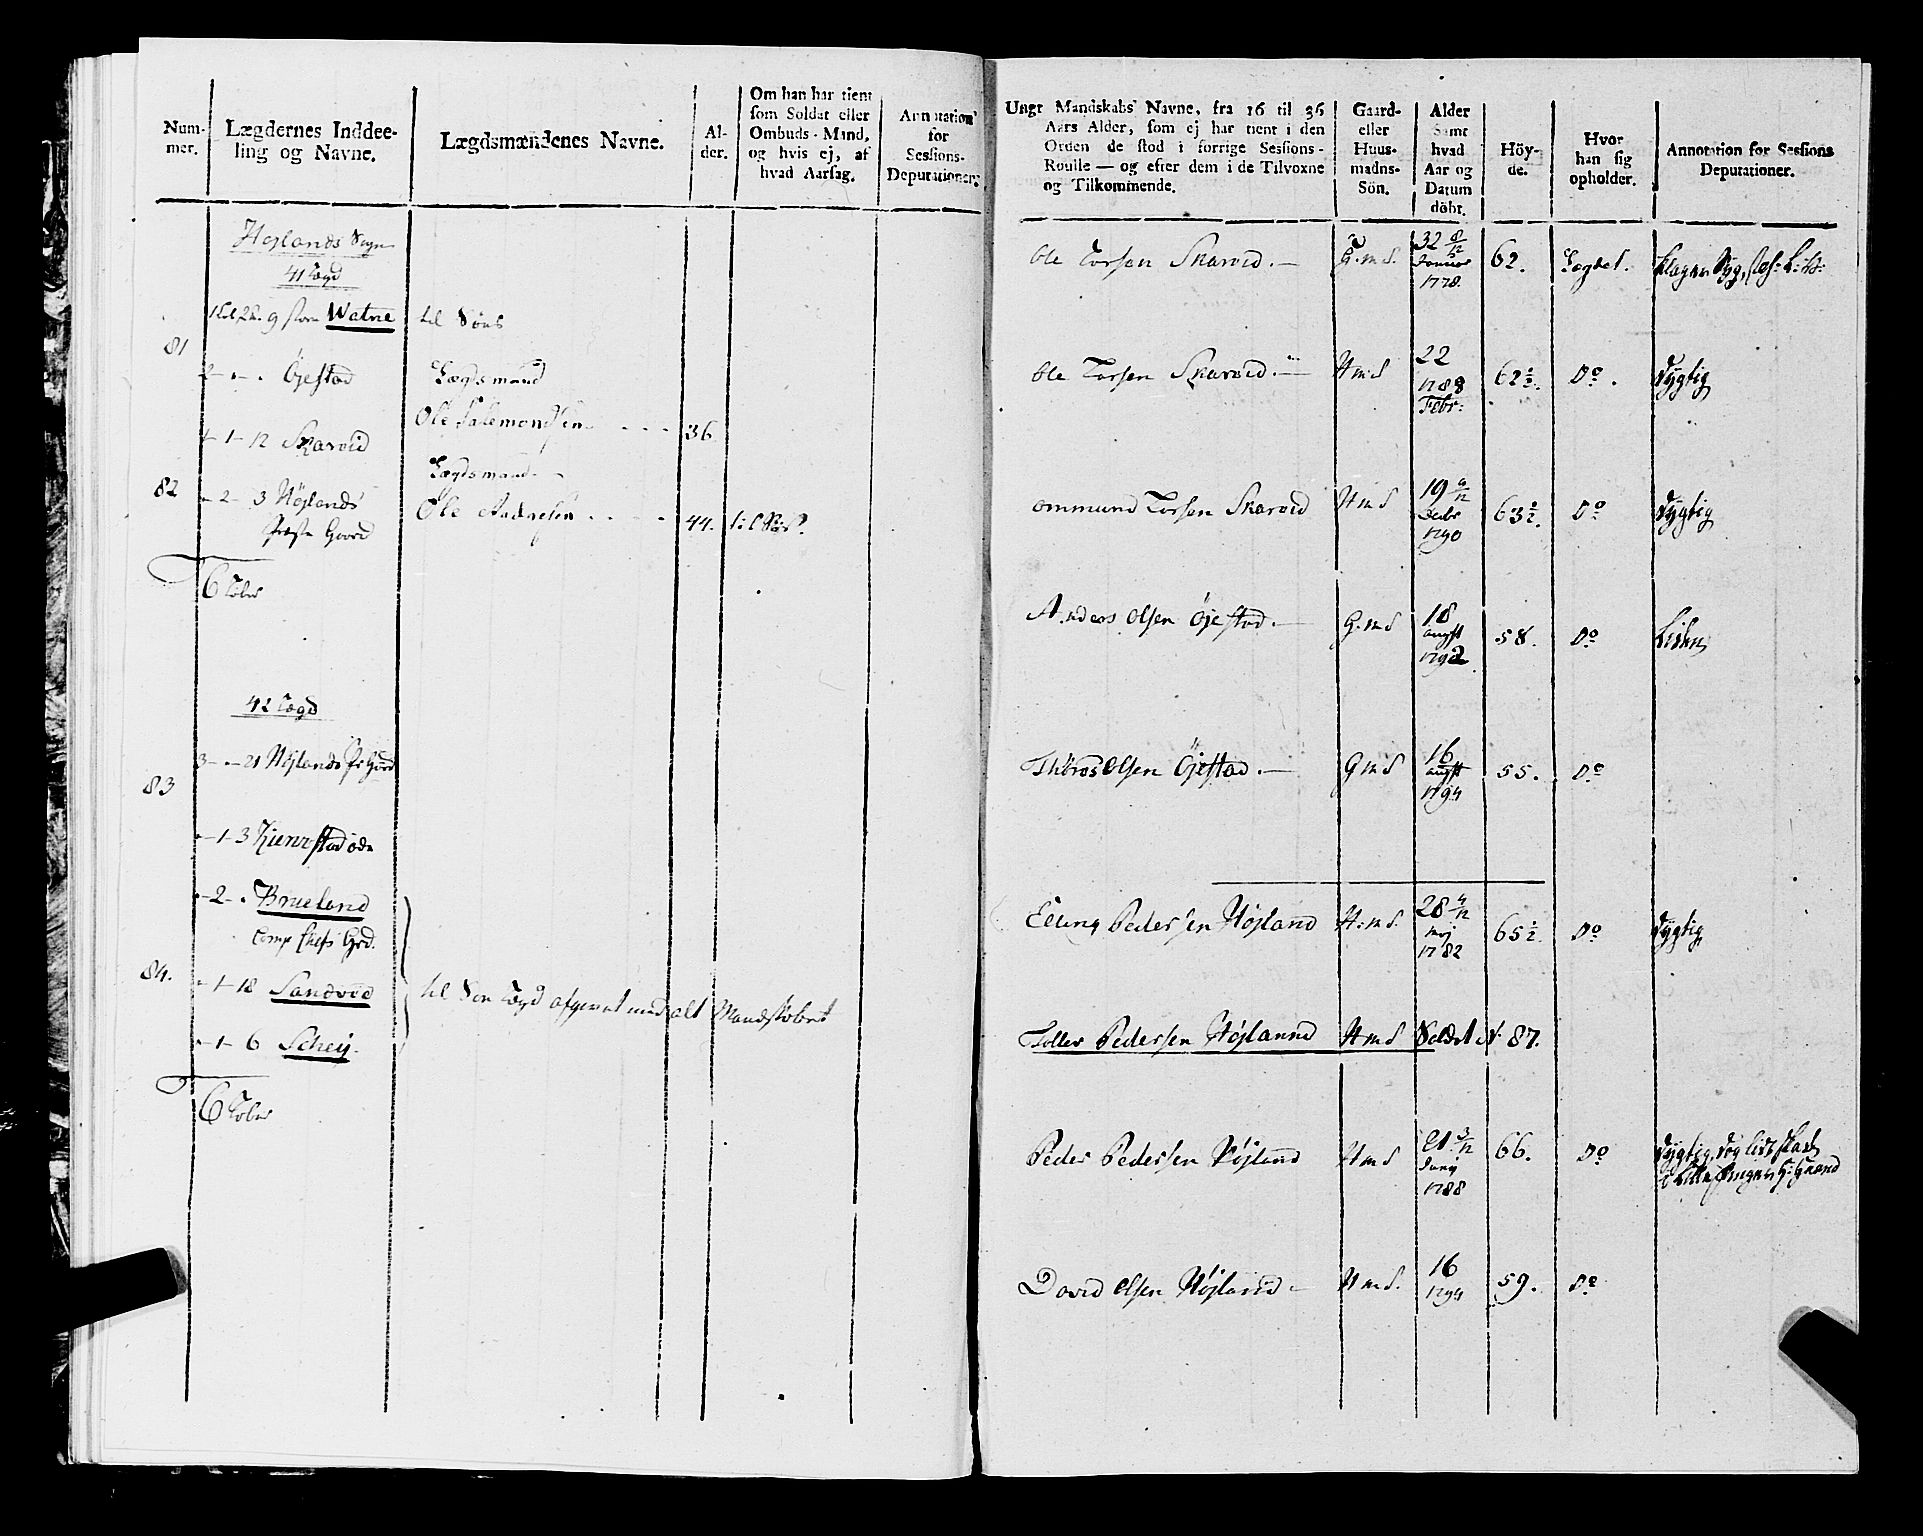 Num-
mer.
Lægdernes Inddee-
ling og Navne.
Lægdsmændenes Navne.
Al-
der.
Om han har tient
som Soldat eller
Ombuds-Mand,
og hvis ej, af
hvad Aarsag.
Annotation
for
Sessions-
Deputationer.
Höjlands Sogn
41 Lægd
9 Watne
til Søes
81
2 - - . Öjestad
Lægdsmand
Ole Salemonsen
36
- 1 - 12 Skarvid
Lægdsmand
82
- 2 - 3 Höjlands
Præste Gaard
Ole Aadnesen
44.
til Søs
6 Løber
42 Lægd
83
3 - - 21 Höjlands Pr Gaard
- 1 - 3 Kienestad öde
- 2 - . Brueland
Comp Chefs Grd.
84.
- 1 - 18 Sandvid
til Søe Lægd afgivet med alt Mandskabet
- 1 - 6 Schej.
6 Løber
Ungt Mandskabs Navne, fra 16 til 36
Aars Alder, som ej har tient i den
Orden de stod i forrige Sessions-
Roulle — og efter dem i de Tilvoxne
og Tilkommende.
Gaard-
eller
Huus-
madns-
Sön.
Alder
samt
hvad
Aar og
Datum
döbt.
Höy-
de.
Hvor
han sig
opholder.
Annotation for Sessions
Deputationer.
Ole Torsen Skarvid. —
G. m S.
32 8/12
Januar
1778.
62.
Lægdet.
klager Syg,
Ole Torsen Skarvid. —
H m S
22
1788
Febr:
62½.
Do.
Dygtig
Ommund Torsen Skarvid
H m S
19 9/12
Decbr
1790
63½.
Do
Dygtig
Anders Olsen Öjestad. —
G. m S
18
Augst
1792
58.
Do
Liden
Thöres Olsen Öjestad. —
G m S
16
Augst
1794
55.
Do
Elling Pedersen Höjland
H. m S.
28 4/12
Maj
1782
65½.
Do
Dygtig
Tollev Pedersen Höjland
H m S
Soldat N 87.
Peder Pedersen Höjland
H m S
21 3/12
Junij
1788
66.
Do
Dygtig, dog lidt skade
i Lille fingeren H: Haand
David Olsen Höjland —
H m S.
16
1794
59.
Do